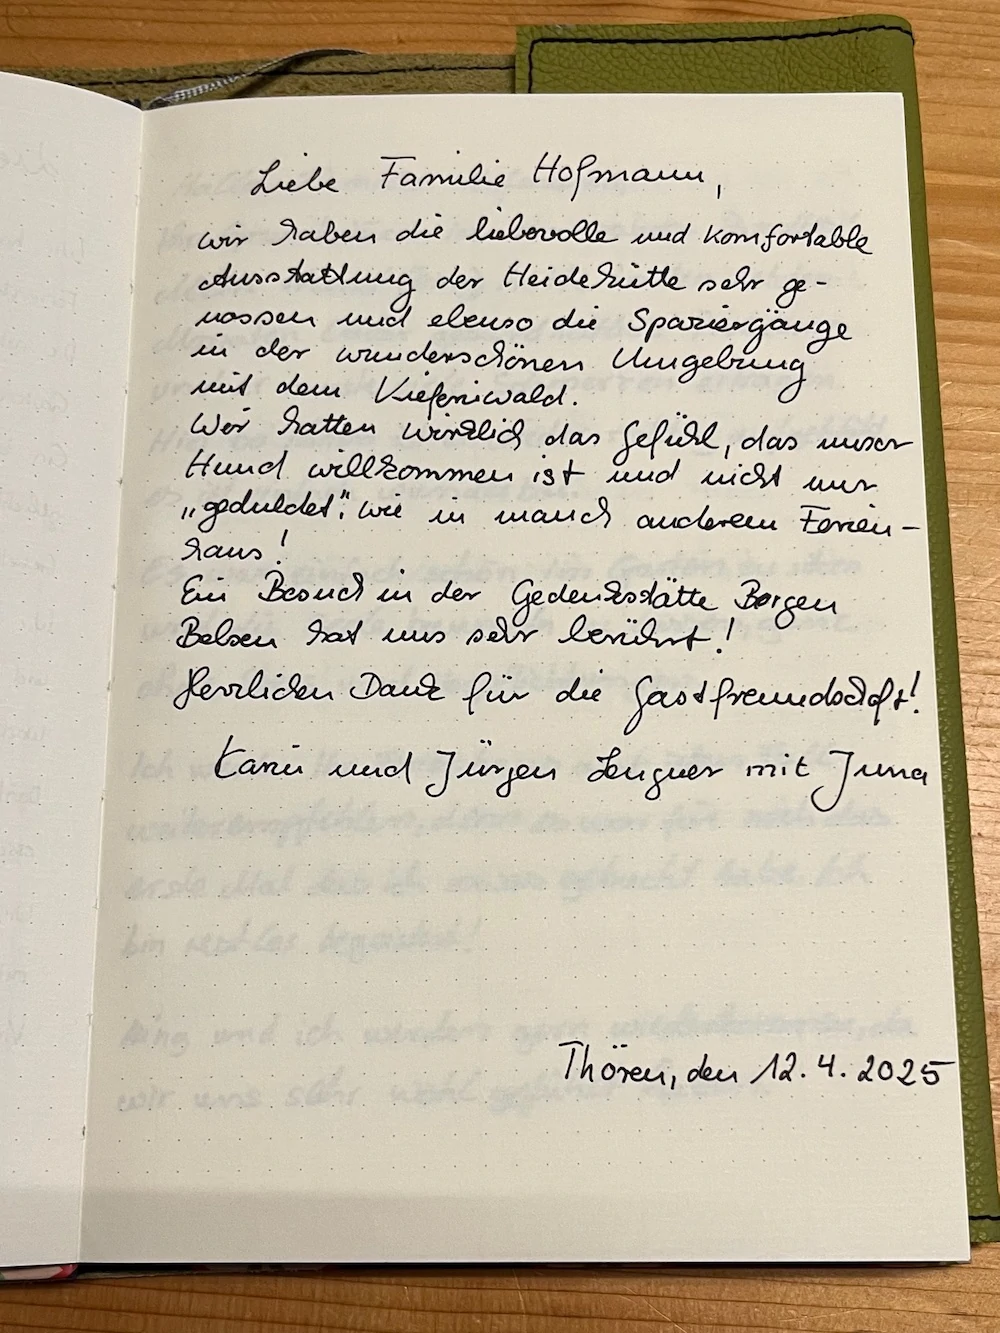 Liebe Familie Hofmann,
wir haben die liebevolle und komfortable
Ausstattung der Heidehütte sehr ge-
nossen und ebenso die Spaziergänge
in der wunderschönen Umgebung
mit dem Kiefernwald.
Wir hatten wirklich das Gefühl, das unser
Hund willkommen ist und nicht nur
„geduldet“, wie in manch anderem Ferien-
haus!
Ein Besuch in der Gedenksstätte Bergen
Belsen hat uns sehr berührt!
Herzlichen Dank für die Gastfreundschaft!
Karin und Jürgen mit Juna
Thören, den 12.4.2025